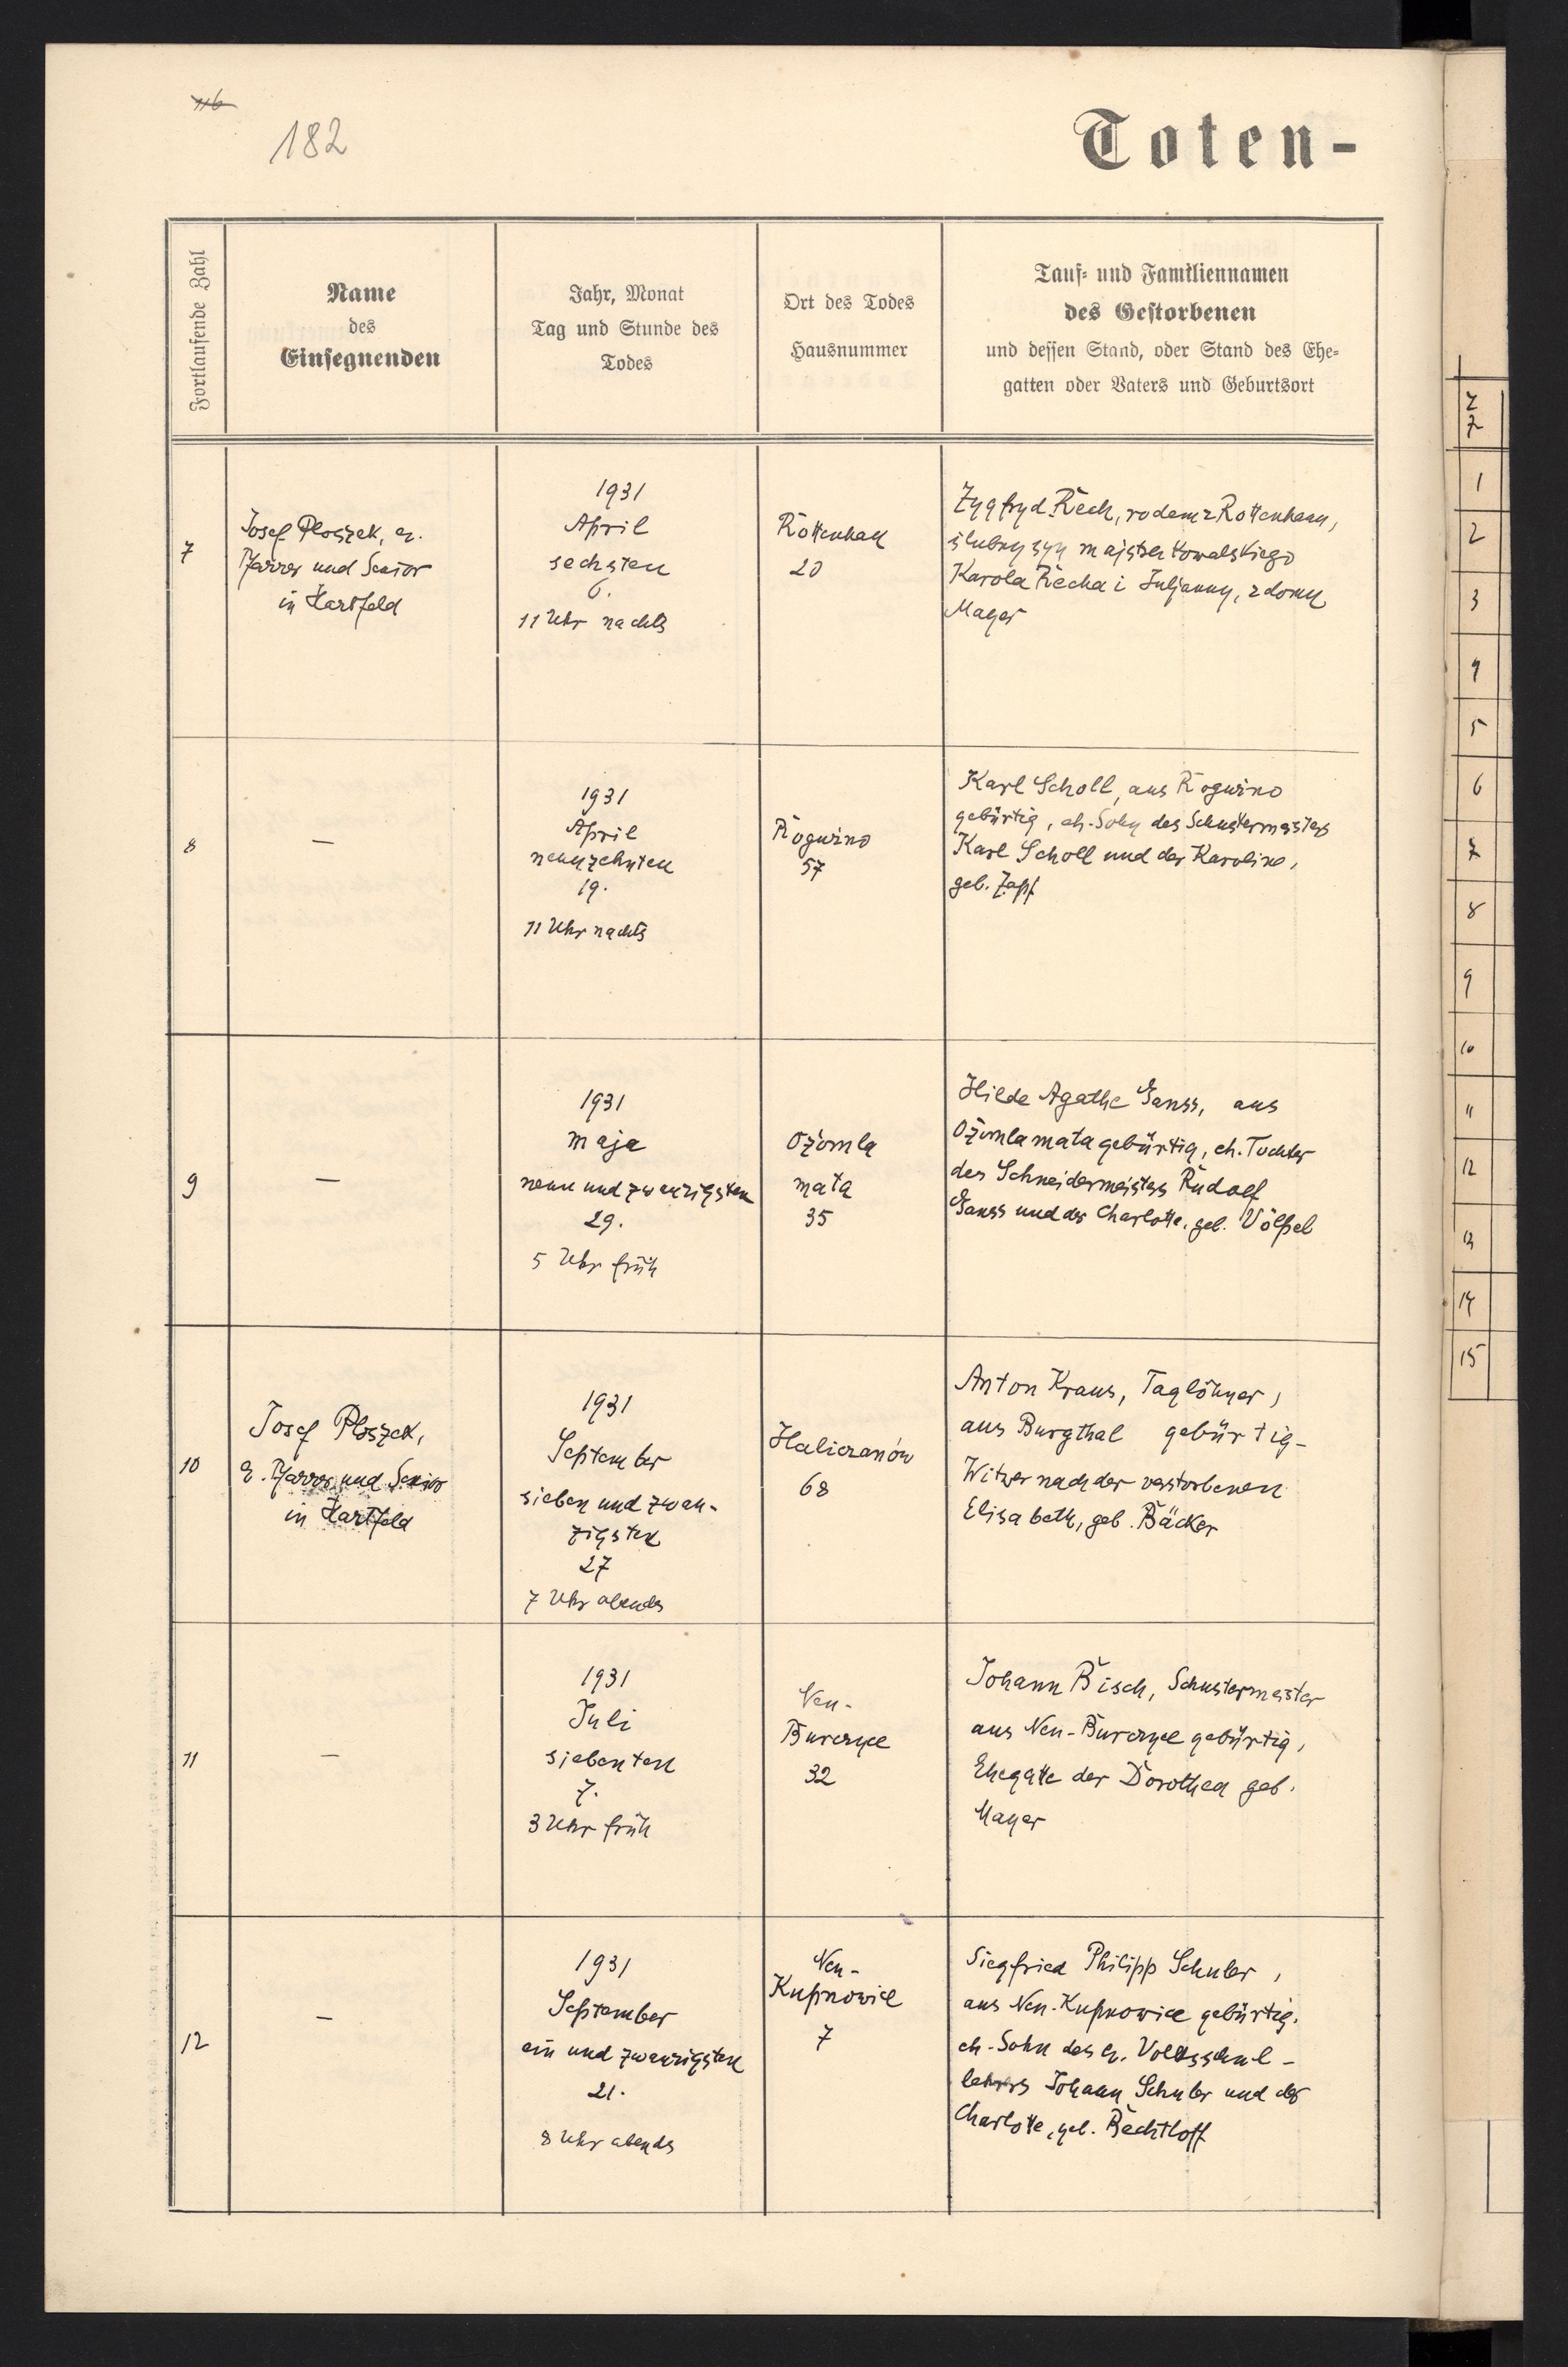 116
182
Toten-
Fortlaufende Zahl
Name
des
Einsegnenden
Jahr, Monat
Tag und Stunde des
Todes
Ort des Todes
Hausnummer
Tauf- und Familiennamen
des Gestorbenen
und dessen Stand, oder Stand des Ehe-
gatten oder Vaters und Geburtsort
7
Josef Ploszek, ev.
Pfarrer und Senior
in Hartfeld
1931
April
sechsten
6.
11 Uhr nachts
Rottenhan
20
Zygfryd Rech, rodem z Rottenhanu,
ślubny syn majstra kowalskiego
Karola Recha i Juljanny, z domu
Mayer
8
—
1931
April
neunzehnten
19.
11 Uhr nachts
Roguźno
57
Karl Scholl, aus Roguźno
gebürtig, eh. Sohn des Schustermeisters
Karl Scholl und der Karoline,
geb. Zapf
9
—
1931
maja
neun und zwanzigsten
29.
5 Uhr früh
Ożomla
mała
35
Hilde Agathe Ganss, aus
Ożomla mała gebürtig, eh. Tochter
des Schneidermeisters Rudolf
Ganss und der Charlotte, geb. Völpel
10
Josef Ploszek,
ev. Pfarrer und Senior
in Hartfeld
1931
September
sieben und zwan-
zigsten
27
7 Uhr abends
Haliczanów
68
Anton Kraus, Taglöhner,
aus Burgthal gebürtig-
Witwer nach der verstorbenen
Elisabeth, geb. Bäcker
11
—
1931
Juli
siebenten
7.
3 Uhr früh
Neu-
Burczyce
32
Johann Bisch, Schustermeister
aus Neu-Burczyce gebürtig,
Ehegatte der Dorothea geb.
Mayer
12
—
1931
September
ein und zwanzigsten
21.
8 Uhr abends
Neu-
Kupnowice
7
Siegfried Philipp Schuler,
aus Neu-Kupnowice gebürtig,
eh. Sohn des ev. Volksschul-
lehrers Johann Schuler und der
Charlotte, geb. Bechtloff
1
2
3
4
5
6
7
8
9
10
11
12
13
14
15